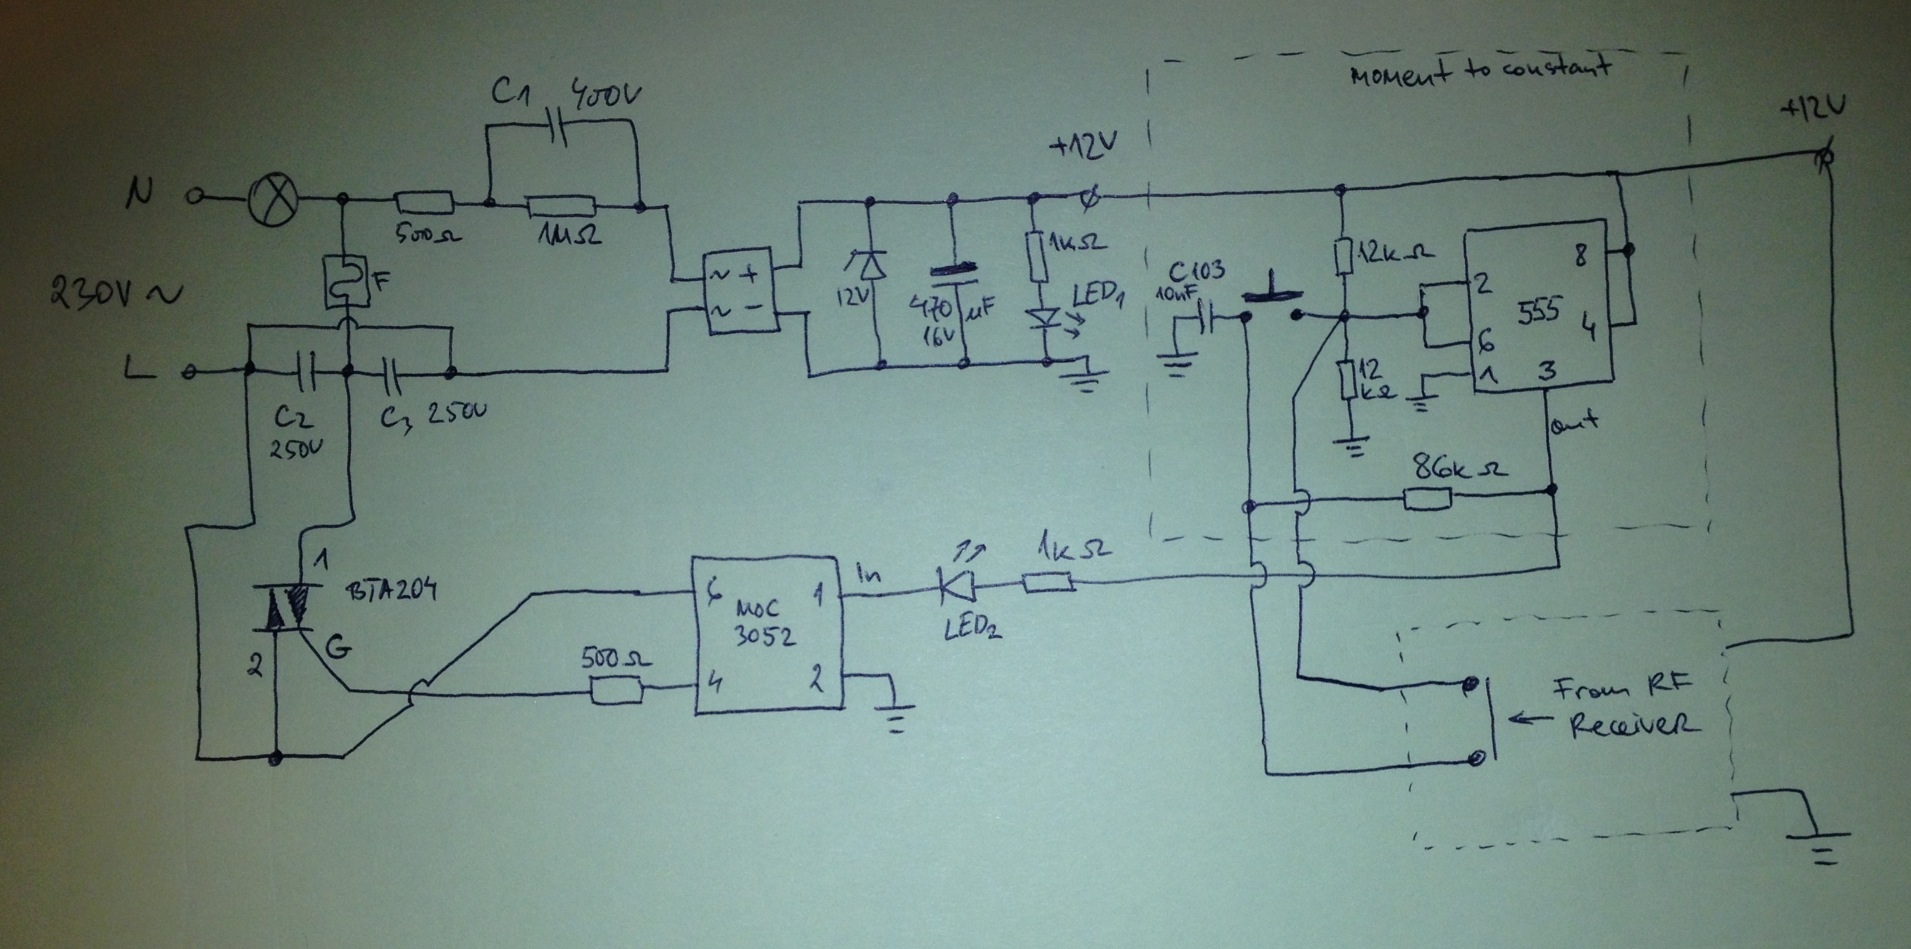 moment to constant
C1 400V
+12V
+12V
N
500Ω
1MΩ
F
230V ~
~ +
~ -
12V
470 µF
16V
1kΩ
LED1
C103
10nF
12kΩ
2
8
555
6
4
1
3
12
kΩ
out
L
C2
250V
C3 250V
86kΩ
1
BTA204
2
G
500Ω
6
MOC
3052
1
4
2
In
LED2
1kΩ
From RF
Receiver